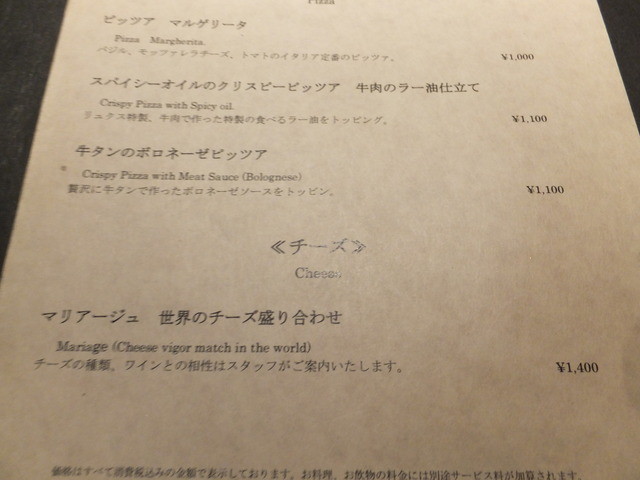 Pizza
ピッツア マルゲリータ
Pizza Margherita.
バジル、モッツァレラチーズ、トマトのイタリア定番のピッツァ。 ¥1,000
スパイシーオイルのクリスピーピッツア 牛肉のラー油仕立て
Crispy Pizza with Spicy oil.
リュクス特製、牛肉で作った特製の食べるラー油をトッピング。 ¥1,100
牛タンのボロネーゼピッツア
Crispy Pizza with Meat Sauce (Bolognese)
贅沢に牛タンで作ったボロネーゼソースをトッピン。 ¥1,100
≪チーズ≫
Cheese.
マリアージュ 世界のチーズ盛り合わせ
Mariage (Cheese vigor match in the world)
チーズの種類、ワインとの相性はスタッフがご案内いたします。 ¥1,400
価格はすべて消費税込みの金額で表示しております。お料理、お飲物の料金には別途サービス料が加算されます。